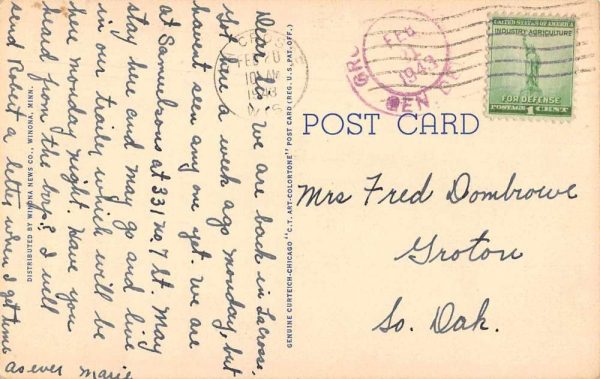 Dear Sis: We are back in LaCrosse.
Got here a week ago Monday, but
havent seen any one yet. We are
at Samuelsons at 331 no. 7 St. May
stay here and may go and live
in our trailer which will be
here monday night. Have you
heard from the boys? I will
send Robert a letter when I get time
as ever Marie
DISTRIBUTED BY WINONA NEWS CO., WINONA, MINN.
GENUINE CURTEICH-CHICAGO "C.T. ART-COLORTONE" POST CARD (REG. U.S. PAT. OFF.)
FEB
1943
WIS
FEB
11
1943
UNITED STATES OF AMERICA
INDUSTRY AGRICULTURE
FOR DEFENSE
POSTAGE 1 CENT
POST CARD
Mrs Fred Dombrowe
Groton
So. Dak.